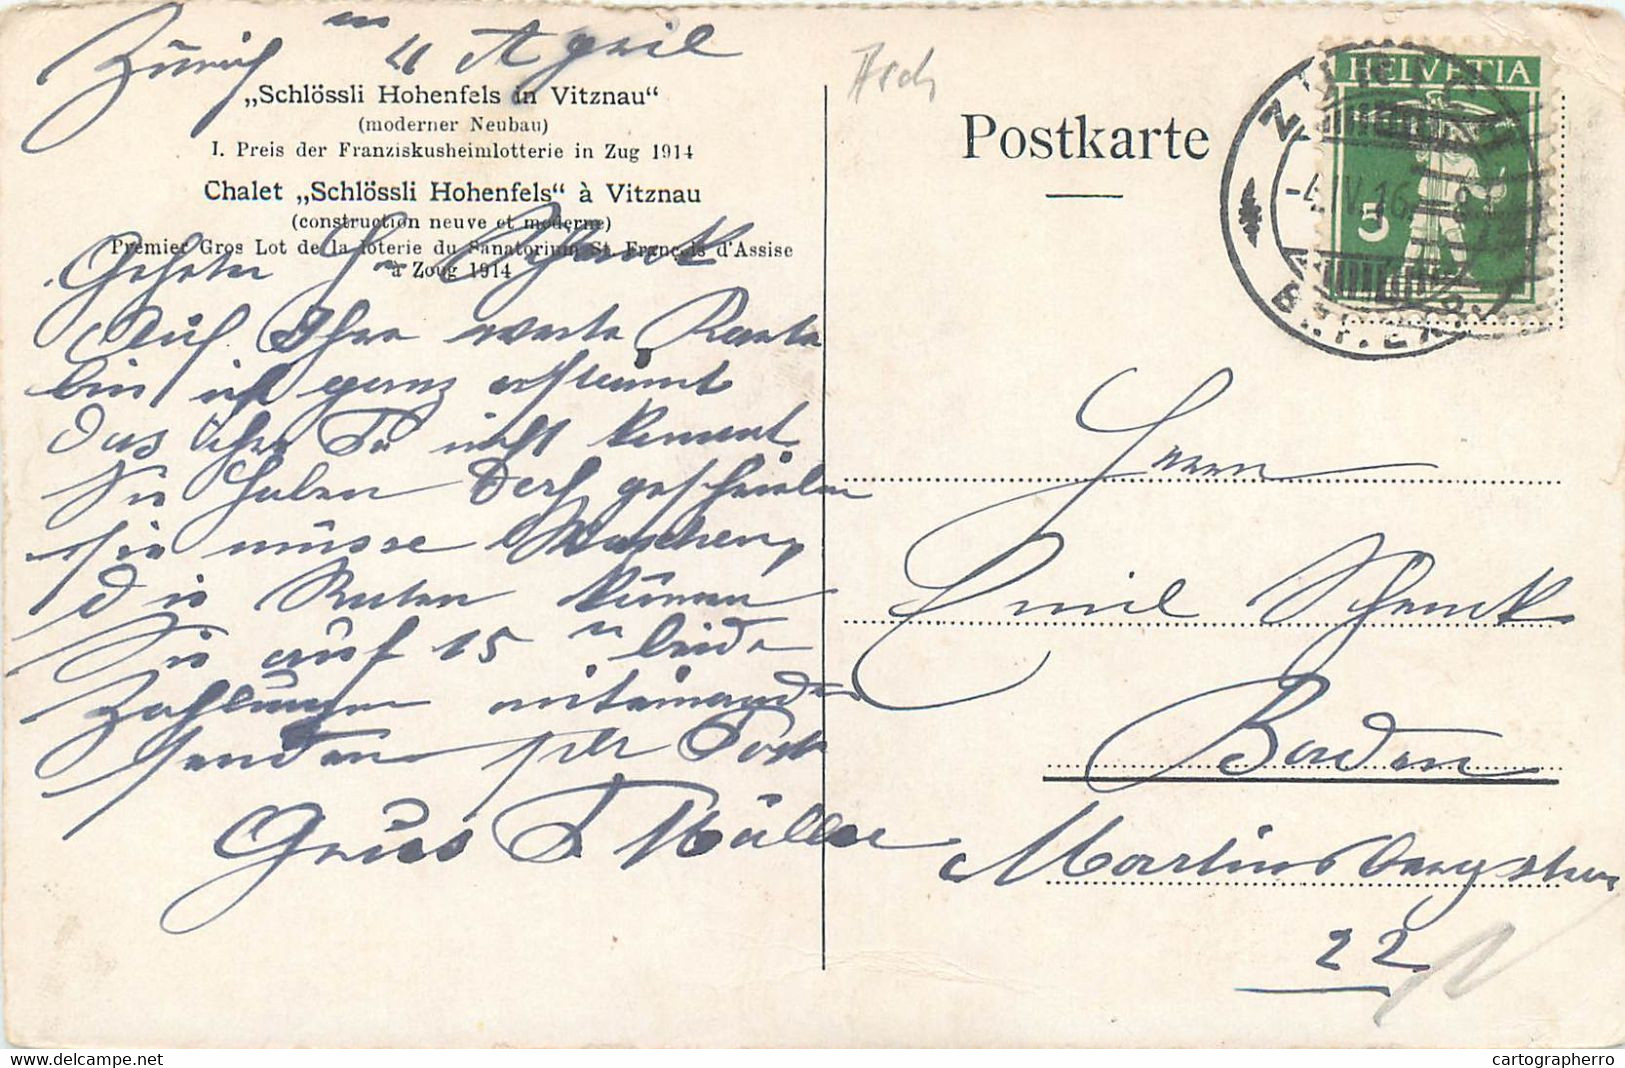 Zürich 4 April
„Schlössli Hohenfels in Vitznau“
(moderner Neubau)
I. Preis der Franziskusheimlotterie in Zug 1914
Chalet „Schlössli Hohenfels“ à Vitznau
(construction neuve et moderne)
Premier Gros Lot de la loterie du Sanatorium St. François d'Assise
à Zoug 1914
Geehrter Hr Schenk
Auf Ihre werte Karte
bin ich ganz erstaunt
das Ihre Fr nicht kommt
Sie haben Derf geschrieben
sie müsse Waschen,
die Raten können
Sie auf 15 n beide
Zahlungen miteinander
senden per Post
Gruss F Müller
Postkarte
HELVETIA
5
ZÜRICH
-4.IV.16.
BRF. EXP.
Herrn
Emil Schenk
Baden
Martinsbergstr
22
cartographerro